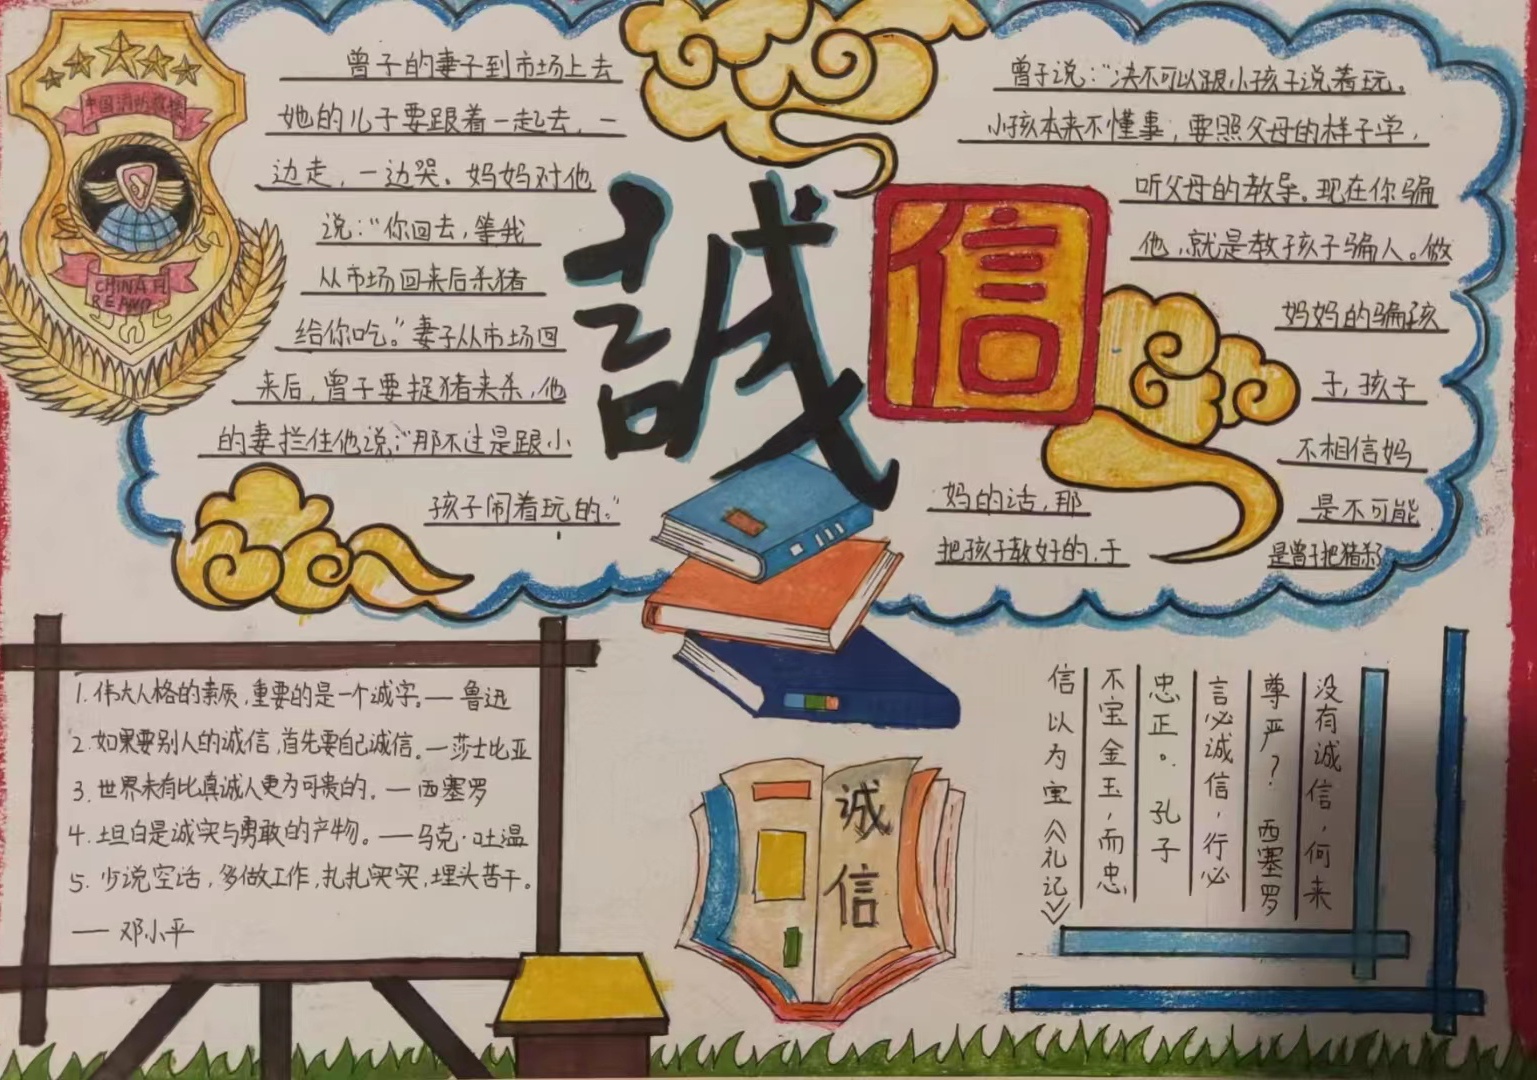 中国消防救援
CHINA FI
RE AND
曾子的妻子到市场上去
她的儿子要跟着一起去，一
边走，一边哭。妈妈对他
说：“你回去，等我
从市场回来后杀猪
给你吃。”妻子从市场回
来后，曾子要捉猪来杀，他
的妻拦住他说：“那不过是跟小
孩子闹着玩的。”
誠
信
曾子说：“决不可以跟小孩子说着玩。
小孩本来不懂事，要照父母的样子学，
听父母的教导。现在你骗
他，就是教孩子骗人。做
妈妈的骗孩
子，孩子
不相信妈
妈的话，那
是不可能
把孩子教好的，于
是曾子把猪杀了
1. 伟大人格的素质，重要的是一个诚字。— 鲁迅
2. 如果要别人的诚信，首先要自己诚信。—莎士比亚
3. 世界未有比真诚人更为可贵的。— 西塞罗
4. 坦白是诚实与勇敢的产物。——马克·吐温
5. 少说空话，多做工作，扎扎实实，埋头苦干。
— 邓小平
诚
信
没有诚信，何来
尊严？ 西塞罗
言必诚信，行必
忠正。 孔子
不宝金玉，而忠
信以为宝《礼记》